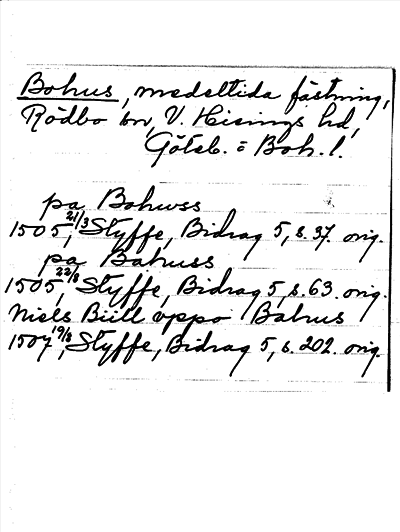 Bohus, medeltida fästning,
Rödbo sn, V. Hisings hd,
Göteb. o Boh. l.
pa Bohwss
1505 21/3, Styffe, Bidrag 5, s. 37. orig.
pa Bahuss
1505 22/8, Styffe, Bidrag 5, s. 63. orig.
Niels Biill vppo Bahus
1507 19/8, Styffe, Bidrag 5, s. 202. orig.